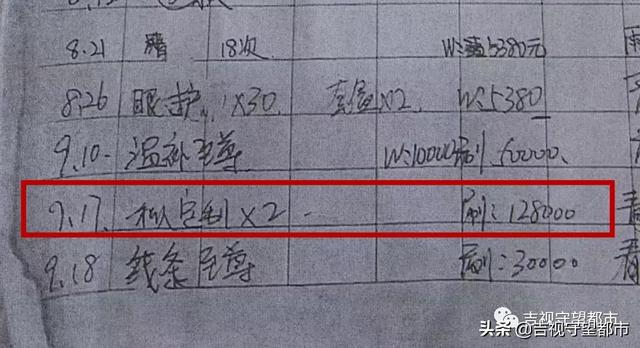 8.21 18次 5380元
8.26 眼护 1X30 X12 W:5380
9.10- 温补至尊 W:10000 刷:60000、
9.17、私定制X2 - 刷:128000
9.18 线条至尊 刷:30000 春
吉视守望都市
头条@吉视守望都市